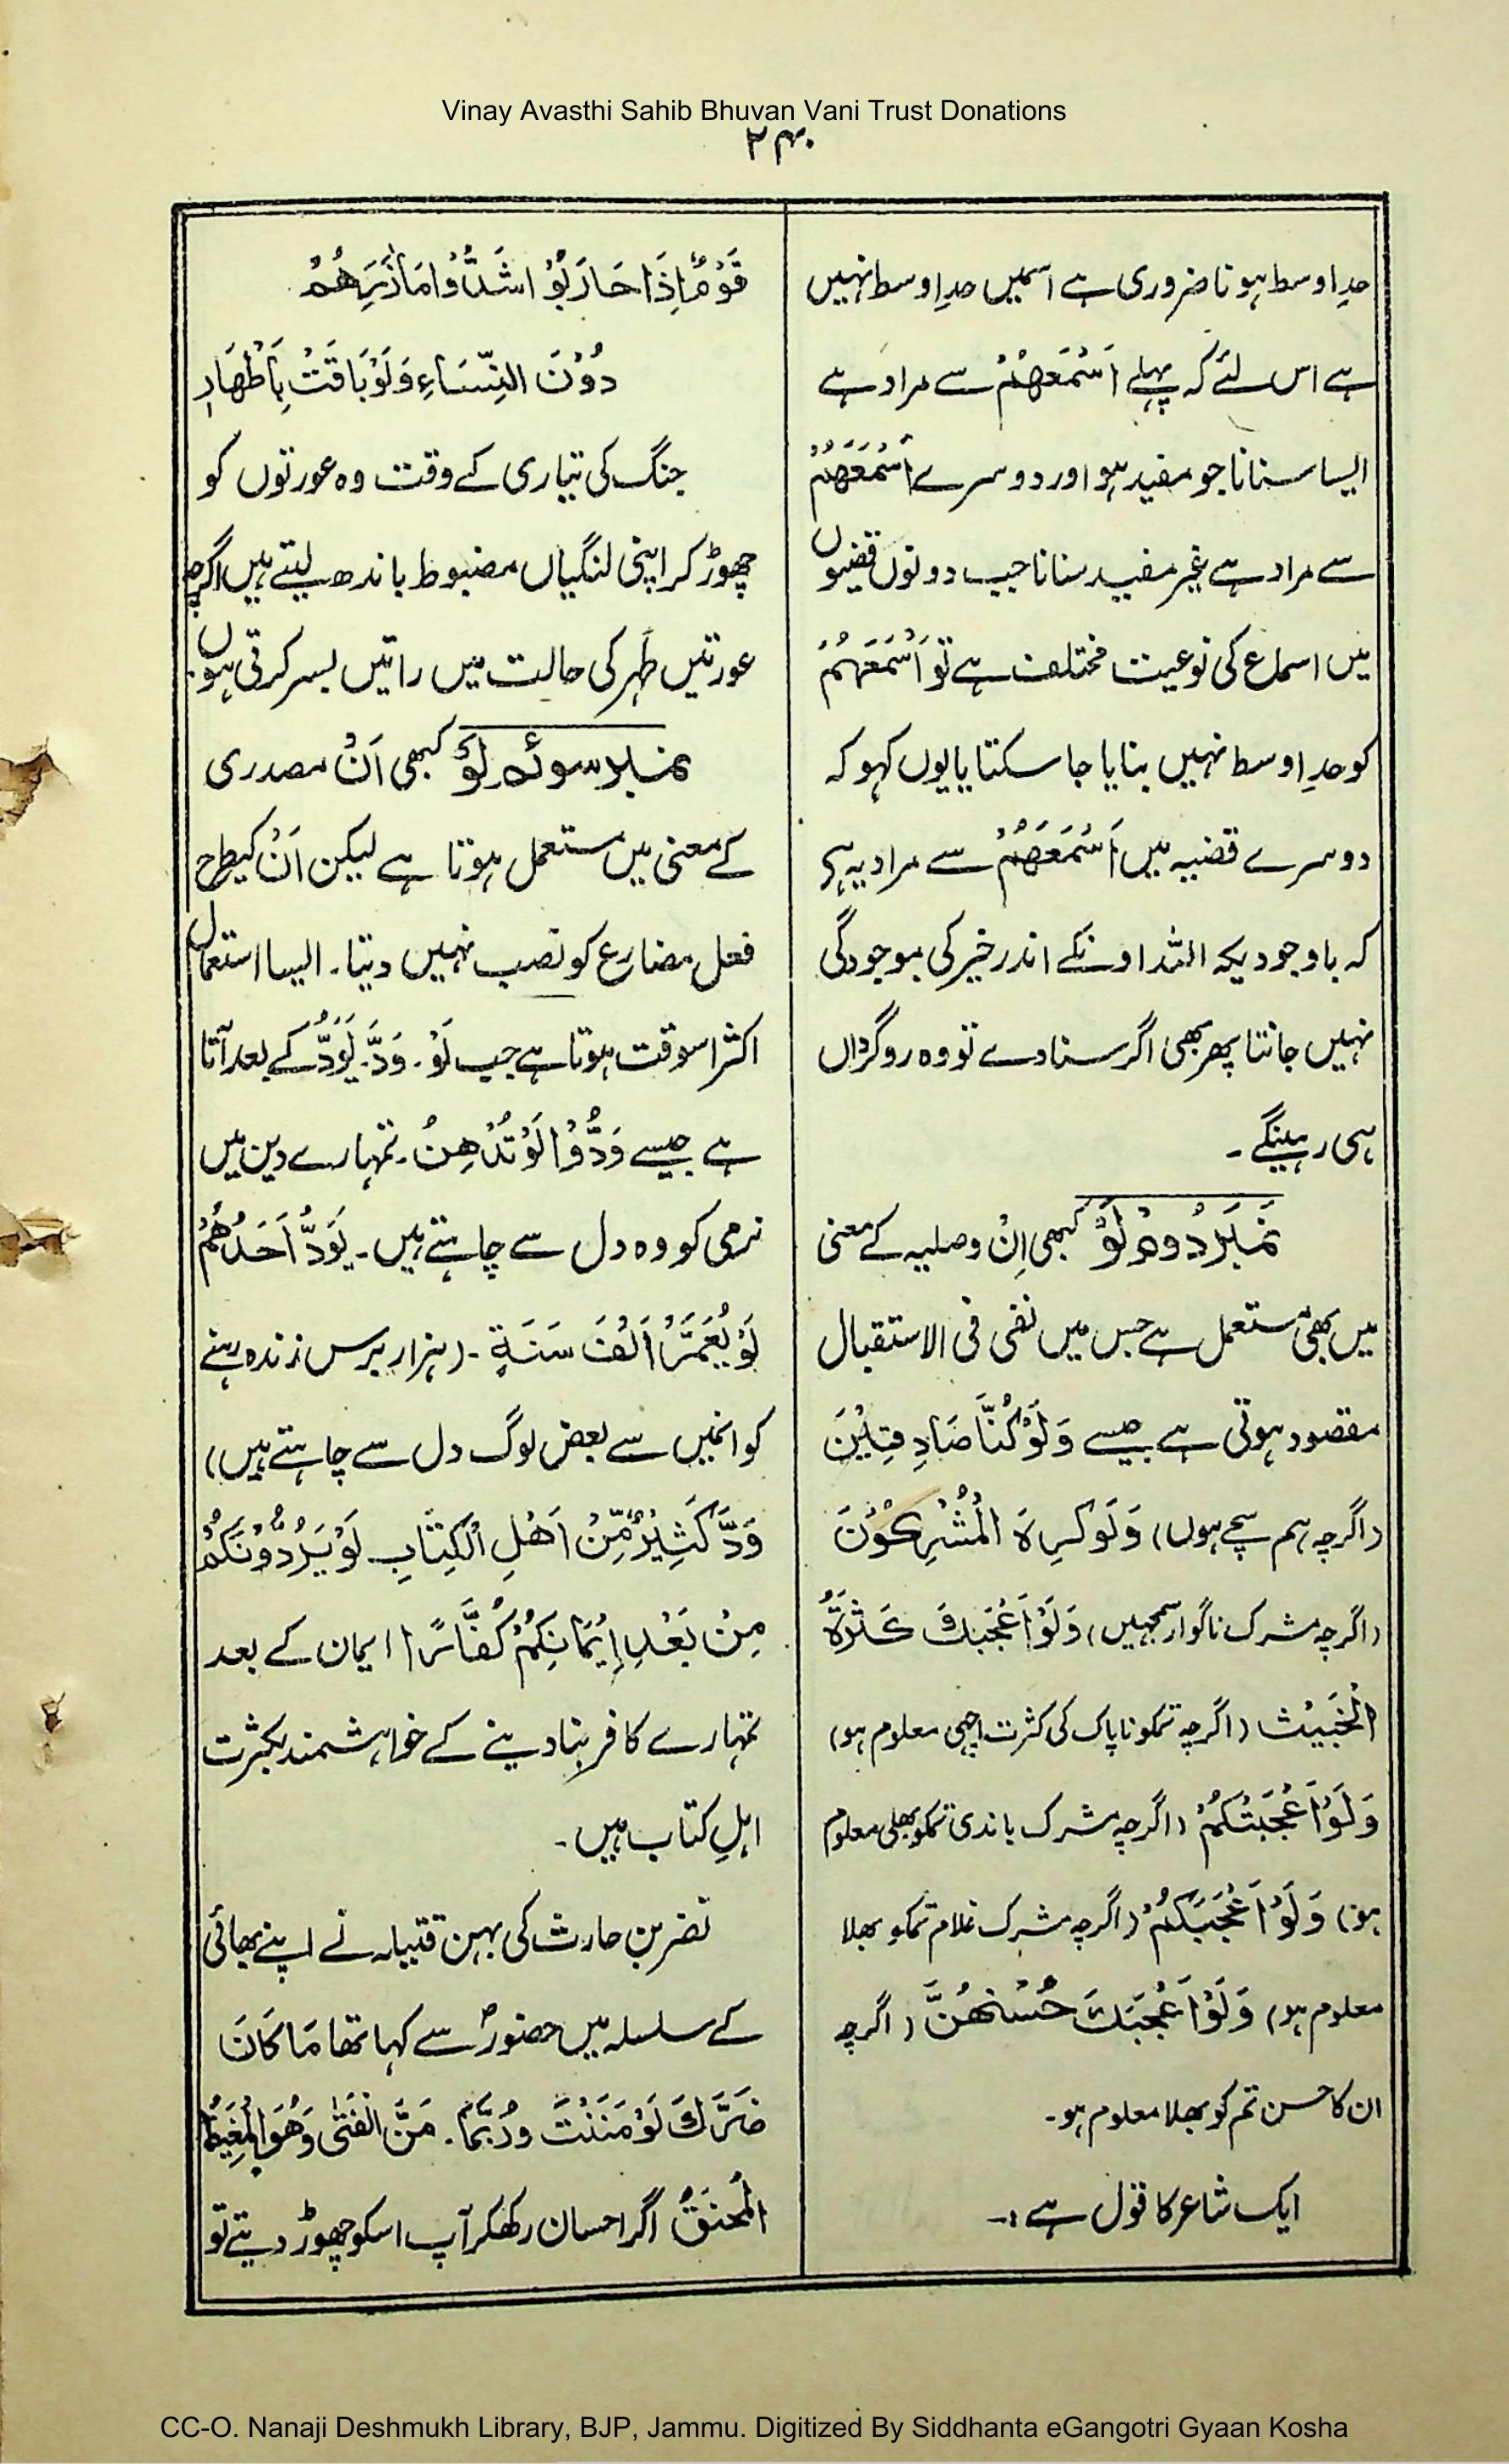 Vinay Avasthi Sahib Bhuvan Vani Trust Donations
۲۴۰
حدِ اوسط ہونا ضروری ہے اسمیں حدِ اوسط نہیں
ہے اس لئے کہ پہلے اَسْمَعَهُمْ سے مراد ہے
ایسا سنانا جو مفید ہو اور دوسرے اَسْمَعَهُمْ
سے مراد ہے غیر مفید سنانا جب دونوں قضیوں
میں اسماع کی نوعیت مختلف ہے تو اَسْمَعَهُمْ
کو حدِ اوسط نہیں بنایا جا سکتا یا یوں کہو کہ
دوسرے قضیہ میں اَسْمَعَهُمْ سے مراد یہ ہے
کہ باوجودیکہ اللہ اونکے اندر خیر کی موجودگی
نہیں جانتا پھر بھی اگر سنادے تو وہ روگرداں
ہی رہینگے ۔
نمبر دوم لَوْ کبھی اِنْ وصلیہ کے معنی
میں بھی مستعمل ہے جس میں نفی فی الاستقبال
مقصود ہوتی ہے جیسے وَلَوْ كُنَّا صَادِقِيْنَ
(اگرچہ ہم سچے ہوں) وَلَوْ كَرِهَ الْمُشْرِكُوْنَ
(اگرچہ مشرک ناگوار سمجہیں) وَلَوْ اَعْجَبَكَ كَثْرَةُ
الْخَبِيْث (اگرچہ تمکو ناپاک کی کثرت اچھی معلوم ہو)
وَلَوْ اَعْجَبَتْكُمْ (اگرچہ مشرک باندی تمکو بھلی معلوم
ہو) وَلَوْ اَعْجَبَكُمْ (اگرچہ مشرک غلام تمکو بھلا
معلوم ہو) وَلَوْ اَعْجَبَكَ حُسْنُهُنَّ (اگرچہ
ان کا حسن تم کو بھلا معلوم ہو۔
ایک شاعر کا قول ہے :۔
قَوْمٌ اِذَا حَارَبُوْا شَدُّوْا مَاٰزِرَهُمْ
دُوْنَ النِّسَاءِ وَلَوْ بَاتَتْ بِاَطْهَارِ
جنگ کی تیاری کے وقت وہ عورتوں کو
چھوڑ کر اپنی لنگیاں مضبوط باندھ لیتے ہیں اگرچہ
عورتیں طُہر کی حالت میں راتیں بسر کرتی ہوں۔
نمبر سوئم لَوْ کبھی اَنْ مصدری
کے معنی میں مستعمل ہوتا ہے لیکن اَنْ کیطرح
فعل مضارع کو نصب نہیں دیتا۔ ایسا استعمال
اکثر اسوقت ہوتا ہے جب لَوْ۔ وَدَّ۔ یَوَدُّ کے بعد آتا
ہے جیسے وَدُّوْا لَوْ تُدْهِنُ۔ تمہارے دین میں
نرمی کو وہ دل سے چاہتے ہیں۔ يَوَدُّ اَحَدُهُمْ
لَوْ يُعَمَّرُ اَلْفَ سَنَةٍ ۔ (ہزار برس زندہ رہنے
کو انمیں سے بعض لوگ دل سے چاہتے ہیں)
وَدَّ كَثِيْرٌ مِّنْ اَهْلِ الْكِتَابِ لَوْ يَرُدُّوْنَكُمْ
مِنْ بَعْدِ اِيْمَانِكُمْ كُفَّارًا (ایمان کے بعد
تمہارے کافر بنا دینے کے خواہشمند بکثرت
اہلِ کتاب ہیں۔
نضر بن حارث کی بہن قتیلہ نے اپنے بھائی
کے سلسلہ میں حضورؐ سے کہا تھا مَا كَانَ
ضَرَّكَ لَوْ مَنَنْتَ وَرُبَّمَا۔ مَنَّ الْفَتٰى وَهُوَ الْمَغِيْظُ
الْمُحْنَقُ اگر احسان رکھکر آپ اسکو چھوڑ دیتے تو
CC-O. Nanaji Deshmukh Library, BJP, Jammu. Digitized By Siddhanta eGangotri Gyaan Kosha